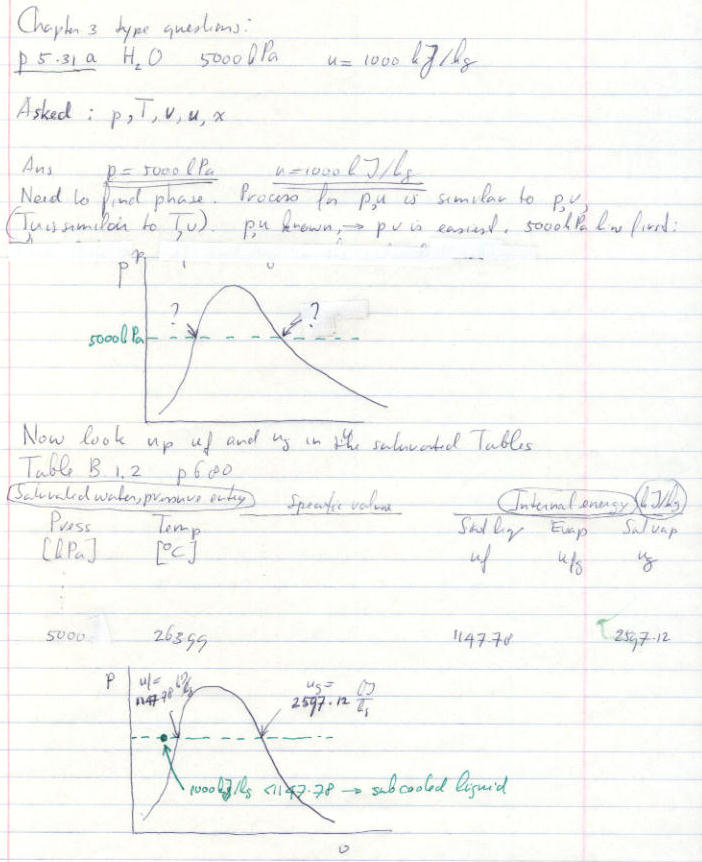 Chapter 3 type questions:
p 5.31 a H₂O 5000 kPa u= 1000 kJ/kg
Asked : p, T, v, u, x
Ans p= 5000 kPa u=1000 kJ/kg
Need to find phase. Process for p,u is similar to p,v,
(T,u is similar to T,v). p,u known, → p v is easiest. 5000kPa line first:
p
? ?
5000kPa
Now look up uf and ug in the saturated Tables
Table B.1.2 p680
Saturated water, pressure entry Specific value Internal energy kJ/kg
Press Temp Sat liq Evap Sat vap
[kPa] [°C] uf ufg ug
5000 26399 1147.78 2597.12
p uf= 1147.78 kJ/kg ug= 2597.12 kJ/kg
1000kJ/kg <1147.78 → subcooled liquid
v